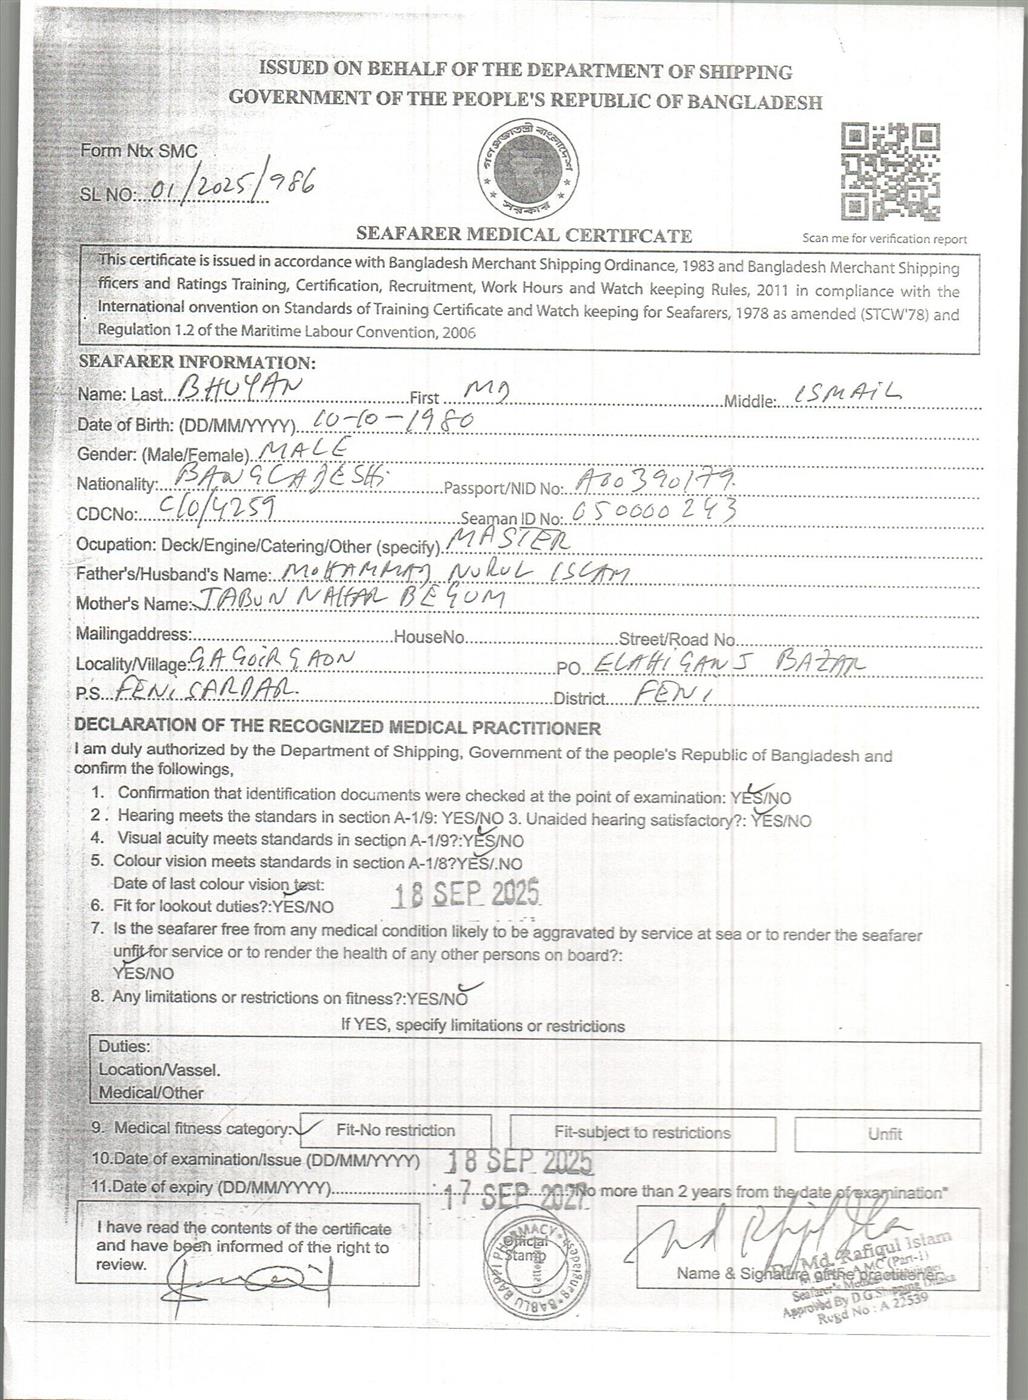 ISSUED ON BEHALF OF THE DEPARTMENT OF SHIPPING
GOVERNMENT OF THE PEOPLE'S REPUBLIC OF BANGLADESH
Form Ntx SMC
SL NO:..01/2025/986
গণপ্রজাতন্ত্রী বাংলাদেশ
সরকার
SEAFARER MEDICAL CERTIFCATE
Scan me for verification report
This certificate is issued in accordance with Bangladesh Merchant Shipping Ordinance, 1983 and Bangladesh Merchant Shipping
fficers and Ratings Training, Certification, Recruitment, Work Hours and Watch keeping Rules, 2011 in compliance with the
International onvention on Standards of Training Certificate and Watch keeping for Seafarers, 1978 as amended (STCW'78) and
Regulation 1.2 of the Maritime Labour Convention, 2006
SEAFARER INFORMATION:
Name: Last BHUYAN First MD Middle: ISMAIL
Date of Birth: (DD/MM/YYYY) 10-10-1980
Gender: (Male/Female) MALE
Nationality: BANGLADESHi Passport/NID No: A00390179
CDCNo: C/0/4259 Seaman ID No: 050000243
Ocupation: Deck/Engine/Catering/Other (specify) MASTER
Father's/Husband's Name: MOHAMMAD NURUL ISLAM
Mother's Name: JABUN NAHAR BEGUM
Mailingaddress: HouseNo Street/Road No
Locality/Village: GAGOIRGAON PO ELAHIGANJ BAZAR
P.S. FENi SARDAR. District FENi
DECLARATION OF THE RECOGNIZED MEDICAL PRACTITIONER
I am duly authorized by the Department of Shipping, Government of the people's Republic of Bangladesh and
confirm the followings,
1. Confirmation that identification documents were checked at the point of examination: YES/NO
2 . Hearing meets the standars in section A-1/9: YES/NO 3. Unaided hearing satisfactory?: YES/NO
4. Visual acuity meets standards in section A-1/9?:YES/NO
5. Colour vision meets standards in section A-1/8?YES/.NO
Date of last colour vision test: 18 SEP 2025
6. Fit for lookout duties?:YES/NO
7. Is the seafarer free from any medical condition likely to be aggravated by service at sea or to render the seafarer
unfit for service or to render the health of any other persons on board?:
YES/NO
8. Any limitations or restrictions on fitness?:YES/NO
If YES, specify limitations or restrictions
Duties:
Location/Vassel.
Medical/Other
9. Medical fitness category: Fit-No restriction Fit-subject to restrictions Unfit
10.Date of examination/Issue (DD/MM/YYYY) 18 SEP 2025
11.Date of expiry (DD/MM/YYYY) 17 SEP 2027 "No more than 2 years from the date of examination"
I have read the contents of the certificate
and have been informed of the right to
review.
BABLU BAPPI PHARMACY
Official
Stamp
Name & Signature of the practitioner
Dr. Md. Rafiqul Islam
AMC (Part-1)
Approved By D.G. Shipping Dhaka
Regd No : A 22539